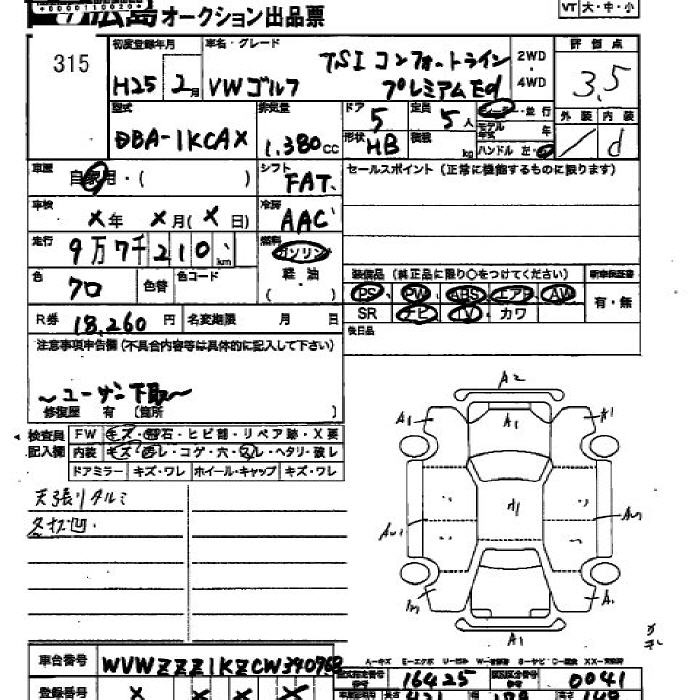 広島オークション出品票
VT 大・中・小
315
初度登録年月 車名・グレード 評価点
H25 2月 VWゴルフ TSIコンフォートライン プレミアムEd 2WD・4WD 3.5
型式 排気量 ドア 5 定員 5人 ディーラー・並行 外装 内装
DBA-1KCAX 1,380cc 形状 HB 積載 kg モデル年式 年 d
ハンドル 左・右
車歴 自家用・( ) シフト FAT セールスポイント (正常に機能するものに限ります)
車検 X年 X月(X日) 冷房 AAC
走行 9万7千210km 燃料 ガソリン
軽油
( )
色 クロ 色替 色コード 装備品 (純正品に限り○をつけてください) 新車保証書
PS PW ABS エアB AW 有・無
SR ナビ TV カワ
R券 18,260円 名変期限 月 日 後日品
注意事項申告欄 (不具合内容等は具体的に記入して下さい)
〜ユーザー下取〜
修復歴 有 (箇所 )
検査員記入欄 FW キズ・飛石・ヒビ割・リペア跡・X要
内装 キズ・汚レ・コゲ・穴・スレ・ヘタリ・破レ
ドアミラー キズ・ワレ ホイール・キャップ キズ・ワレ
天張リタルミ
A2
A1 A1 A1
A1
車台番号 WVWZZZ1KZCW390762
A-キズ E-エクボ
16425 0041
登録番号 X